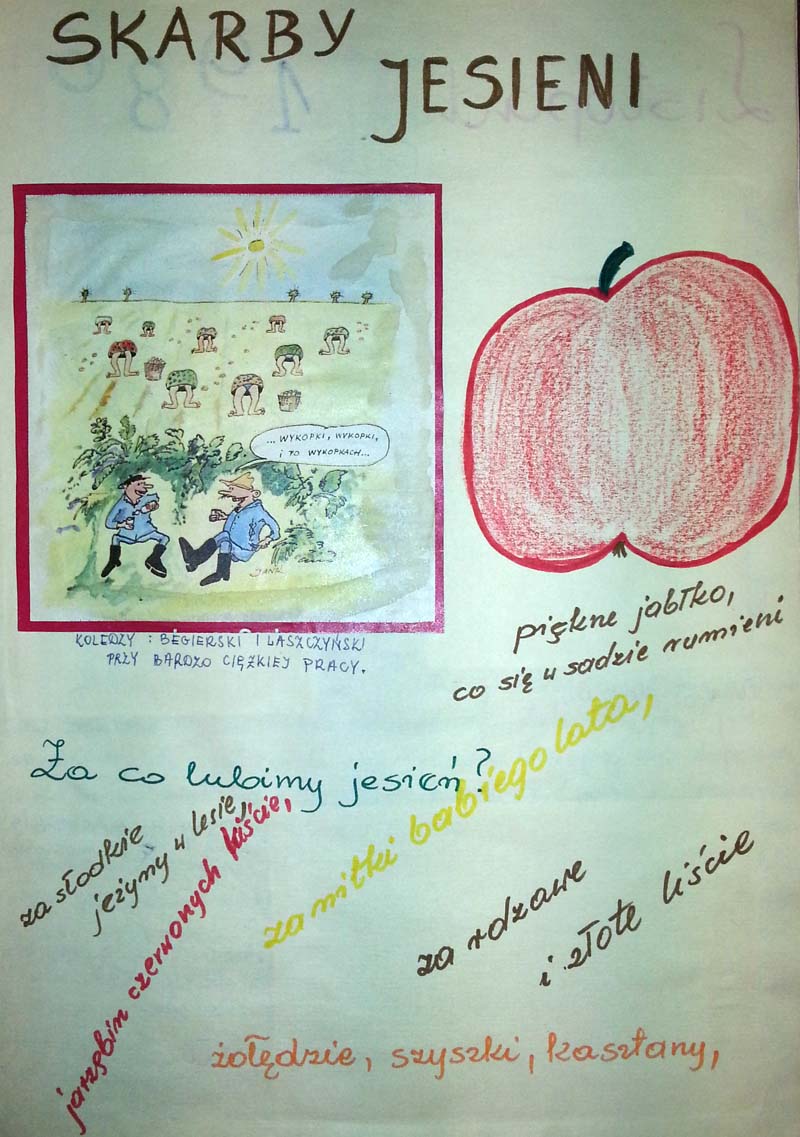 SKARBY
JESIENI
... WYKOPKI, WYKOPKI,
i PO WYKOPKACH...
KOLEDZY : BEGIERSKI I LASZCZYŃSKI
PRZY BARDZO CIĘŻKIEJ PRACY.
piękne jabłko,
co się w sadzie rumieni
Za co lubimy jesień?
za słodkie
jeżyny w lesie,
jarzębin czerwonych kiście,
za nitki babiego lata,
za rdzawe
i złote liście
żołędzie, szyszki, kasztany,